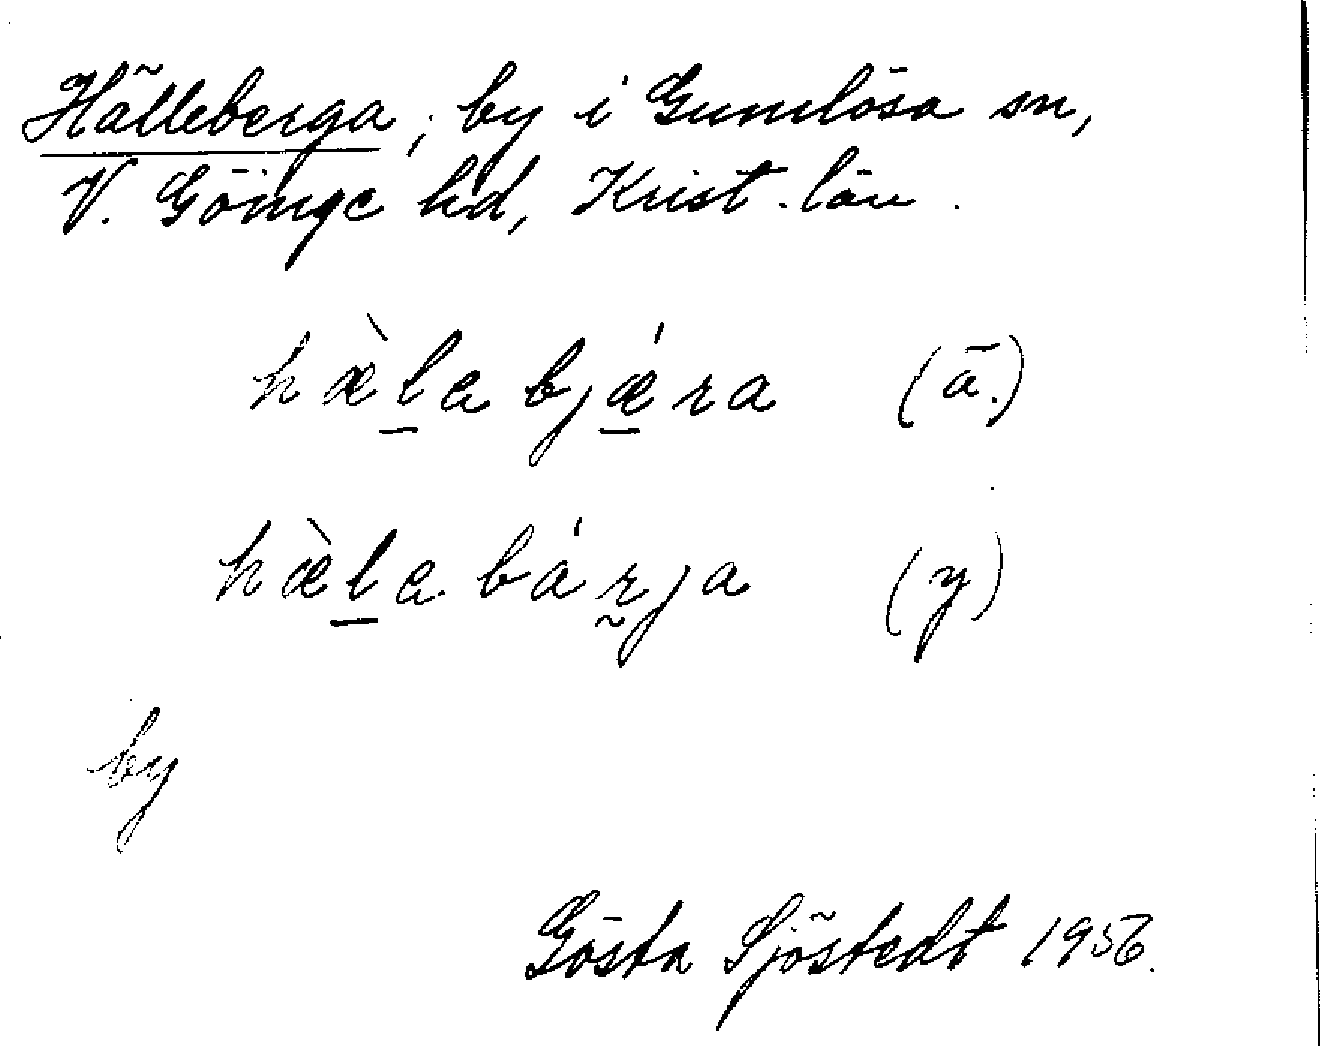 Hälleberga, by i Gumlösa sn,
V. Göinge hd, Krist. län.
hæ̀l̲a bjǽ̲ra (ä.)
hæ̀l̲a bár̰ja (y)
by
Gösta Sjöstedt 1956.